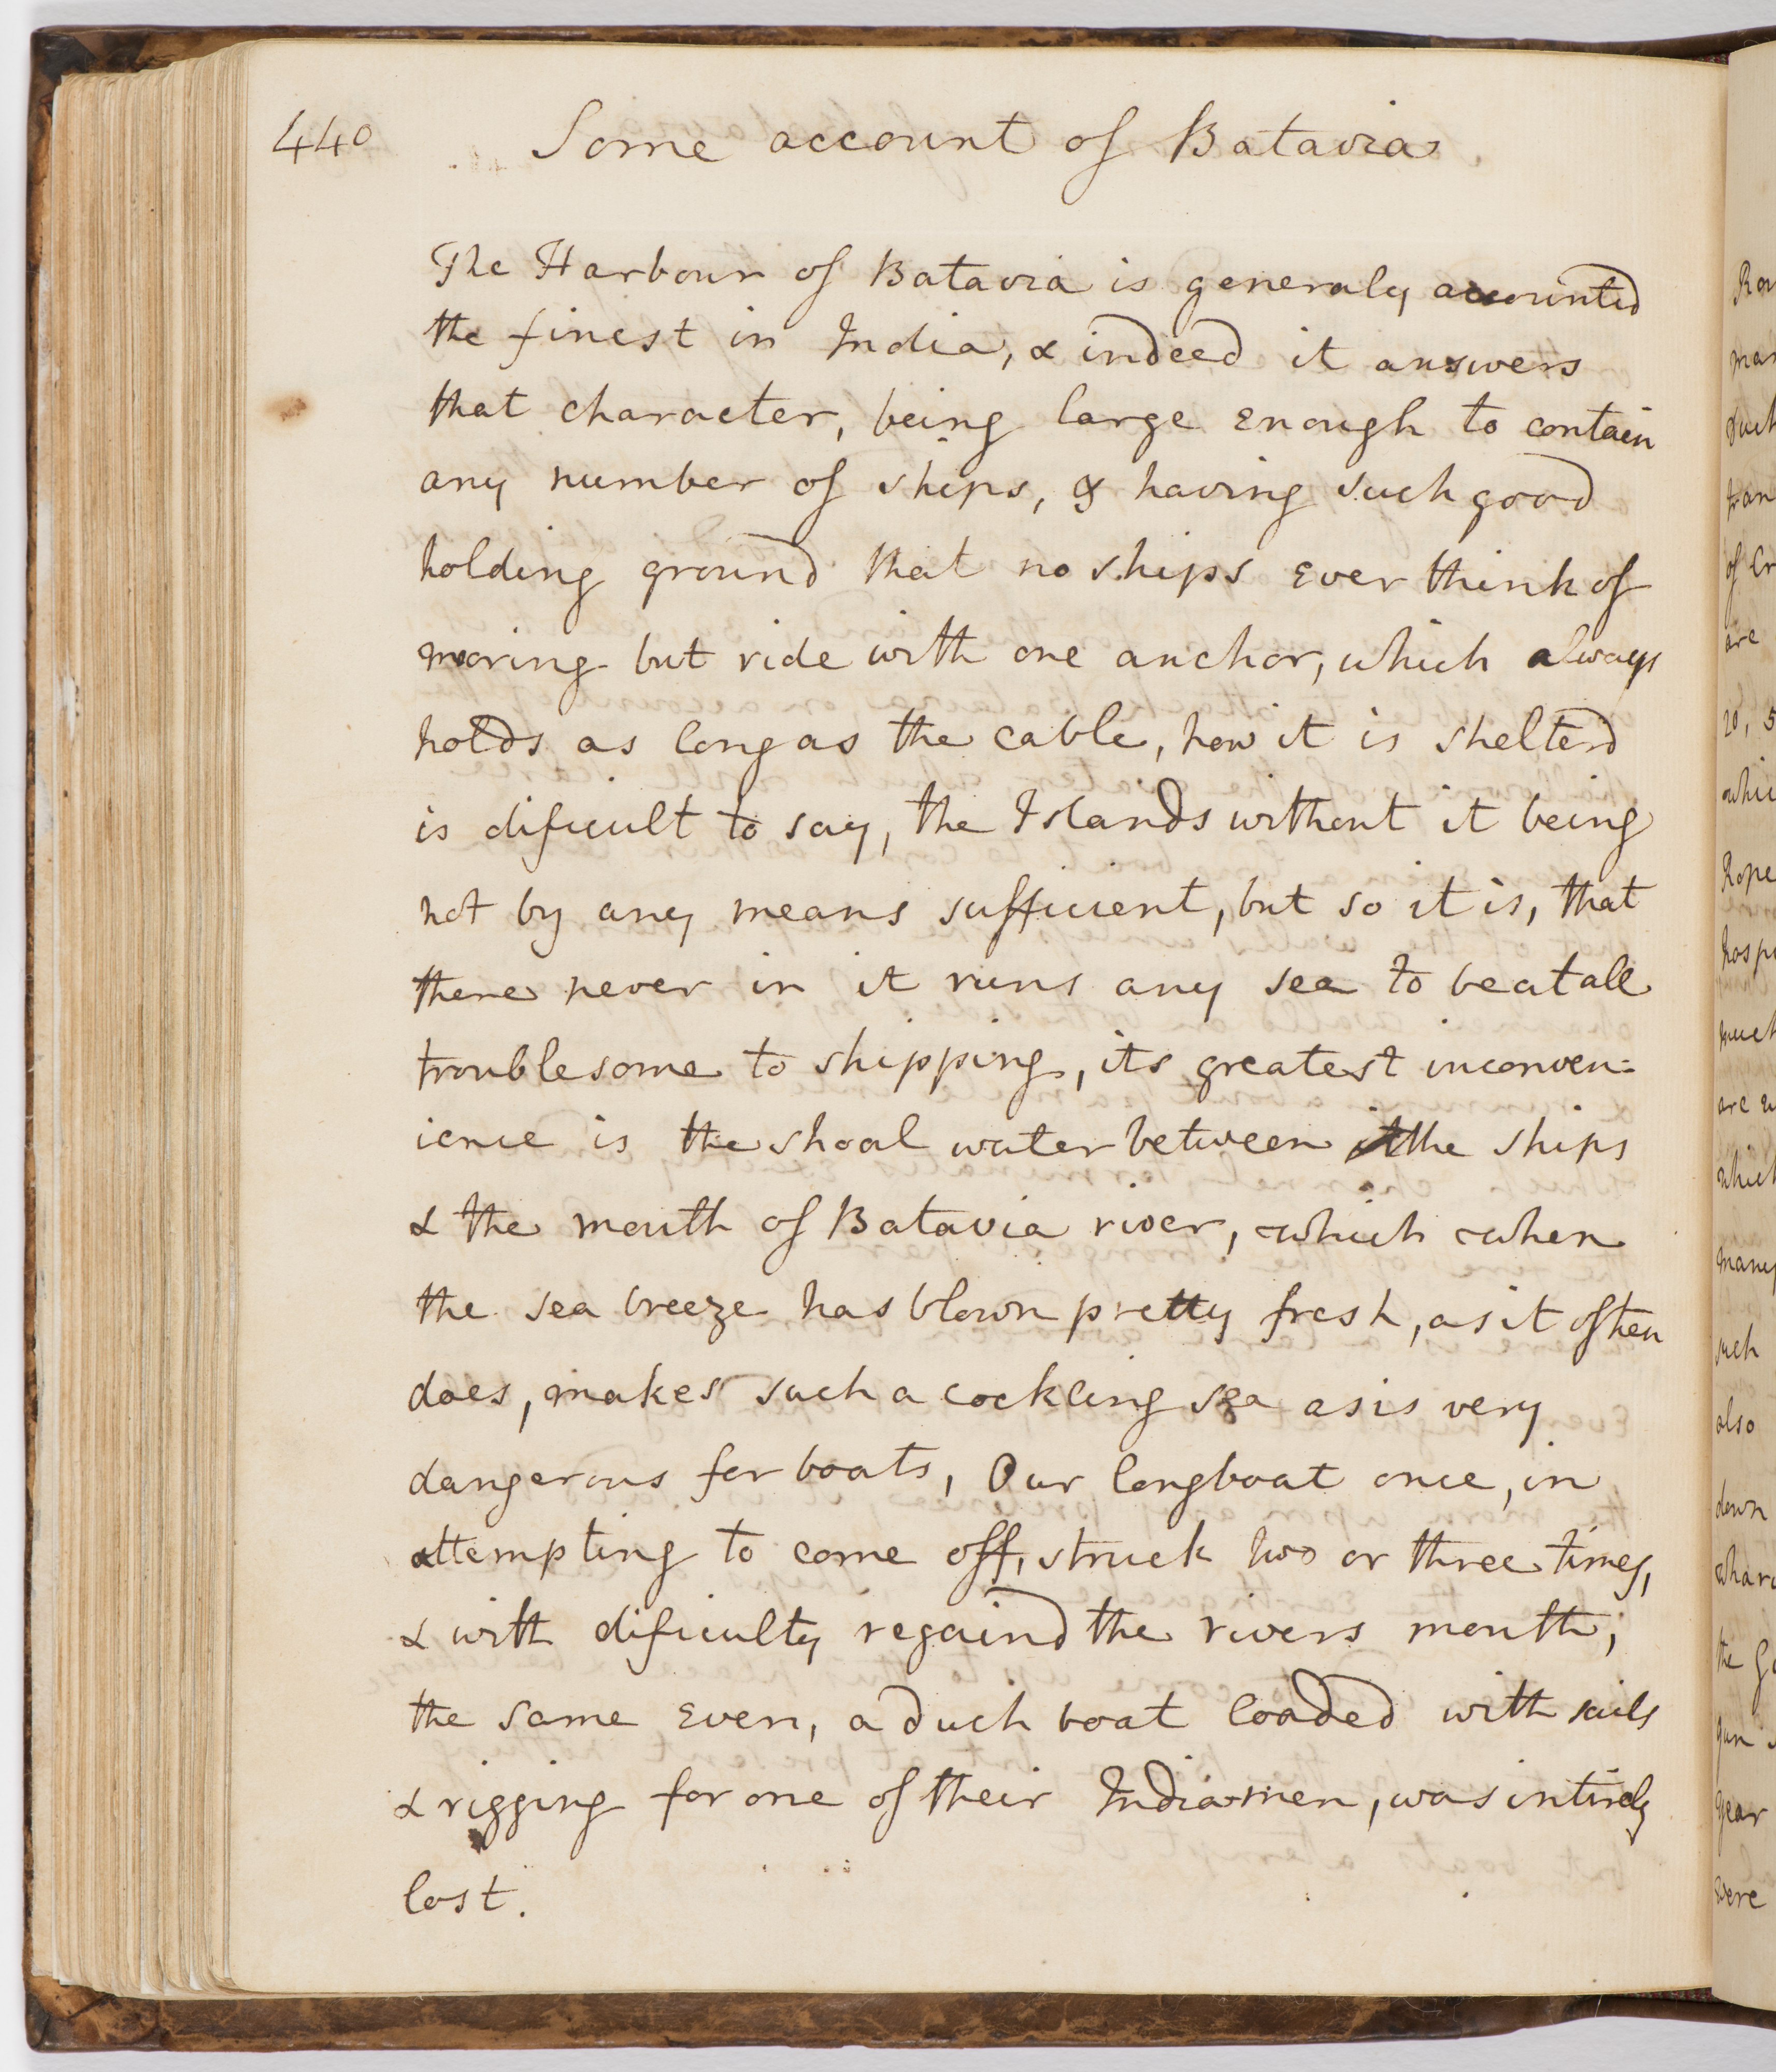 440
Some account of Batavia
The Harbour of Batavia is generaly accounted
the finest in India, & indeed it answers
that character, being large enough to contain
any number of ships, & having such good
holding ground that no ships ever think of
mooring but ride with one anchor, which always
holds as long as the cable, how it is shelterd
is dificult to say, the Islands without it being
not by any means sufficient, but so it is, that
there never in it runs any sea to be at all
troublesome to shipping, its greatest inconven:
ience is the shoal water between the ships
& the mouth of Batavia river, which when
the sea breeze has blown pretty fresh, as it often
does, makes such a cockling sea as is very
dangerous for boats, Our longboat once, in
attempting to come off, struck two or three times,
& with dificulty regaind the rivers mouth;
the same even, a duch boat loaded with sails
& rigging for one of their Indiamen, was intirely
lost.
mar
such
of Cr
are
20, 5
whic
Rope
hosp
much
are
which
many
such
also
down
whar
the G
gun
year
were